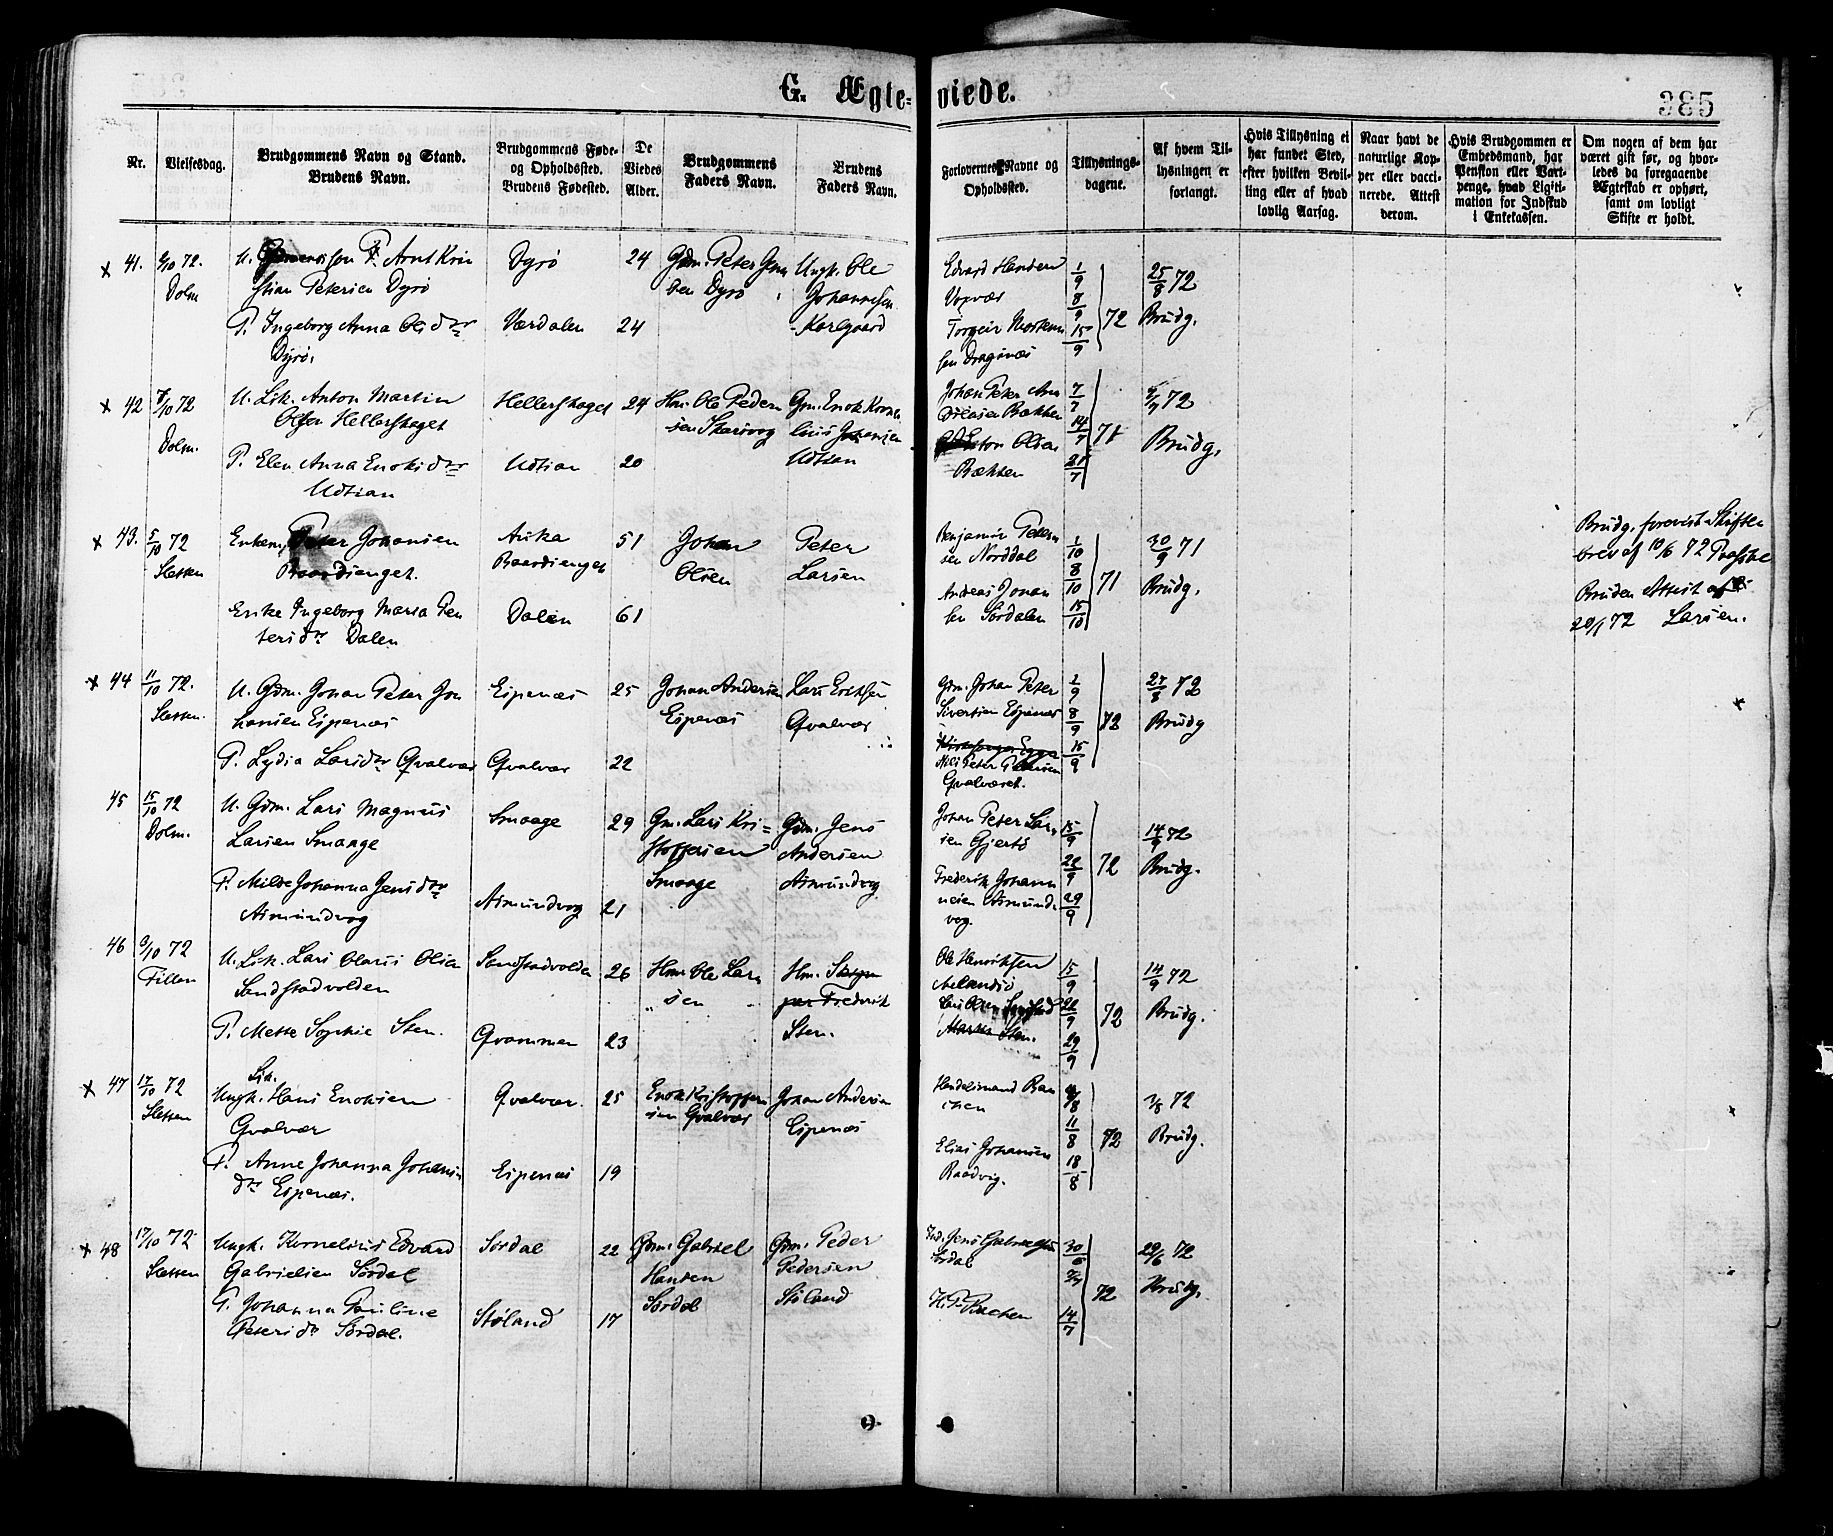 G. Ægteviede.
385
Nr.
Vielsesdag.
Brudgommens Navn og Stand.
Brudens Navn.
Brudgommens Føde-
og Opholdssted.
Brudens Fødested.
De
Viedes
Alder.
Brudgommens
Faders Navn.
Brudens
Faders Navn.
Forlovernes Navne og
Opholdssted.
Tillysnings-
dagene.
Af hvem Til-
lysningen er
forlangt.
Hvis Tillysning ei
har fundet Sted,
efter hvilken Bevil-
ling eller af hvad
lovlig Aarsag.
Naar havt de
naturlige Kop-
per eller vacci-
nerede. Attest
derom.
Hvis Brudgommen er
Embedsmand, har
Pension eller Vart-
penge, hvad Ligiti-
mation for Indskud
i Enkekassen.
Om nogen af dem har
været gift før, og hvor-
ledes da foregaaende
Ægteskab er ophørt,
samt om lovligt
Skifte er holdt.
x 41. 6/10 72.
Dolm
Arnt Kri
stian Petersen Dyrø
P. Ingeborg Anna Olsdtr
Dyrø.
Dyrø
Værdalen
24
24
Gdm. Peter Jen
sen Dyrø
Ungk. Ole
Johannesen
Karlgaard
Edvard Hansen
Vopvær
Torgeir Morten
sen Dragsnæs
1/9
8/9
15/9
72
25/8 72
Brudg.
x 42 /10 72
Dolm.
U. Lik. Anton Martin
Olsen Hellerskaget
P. Elen Anna Enoksdtr
Udtian
Hellerskaget
Udtian
24
20
Hm. Ole Peder
sen Skarsvog
Gm. Enok Korne
lius Johansen
Udtian
Johan Peter An
dreasen Bækken
Anton Olsen
Bækken
7/7
14/7
21/7
71
72
Brudg.
x 43. 5/10 72
Sletten
Enkem. Peter Johansen
Baardsenget.
Enke Ingeborg Marta Pe
tersdtr Dalen
Auka
Baardsenget
Dalen
51
61
Johan
Olsen
Peter
Larsen
Benjamin Peter
sen Norddal
Andreas Johan
sen Sørdalen
1/10
8/10
15/10
71
30/9 71
Brudg.
Brudg. forevist Skifte
brev af 10/6 72
Bruden Attest af
20/1 72 Larsen.
x 44 11/10 72.
Sletten.
U. Gdm. Johan Peter Jo
hansen Espenæs
P. Lydia Larsdtr Qvalvær
Espenæs
Qvalvær
25
22
Johan Andersen
Espenæs
Lars Eriksen
Qvalvær
Gdm. Johan Peter
Sivertsen Espenæs
Nils Peter Petersen
Qvalværet.
1/9
8/9
15/9
72
27/8 72
Brudg
45 15/10 72
Dolm.
U. Gdm. Lars Magnus
Larsen Smaage
P. Milde Johanna Jensdtr
Asmundvog
Smaage
Asmundvog
29
21
Gm. Lars Kri=
stoffersen
Smaage
Gdm. Jens
Andersen
Asmundvog
Johan Peter Lar
sen Gjertø
Frederik Johann
nesen Asmund
vog.
15/9
22/9
29/9
72
14/9 72
Brudg.
46 /10 72
Fillan
U. Lik. Lars Olaus Olsen
Sandstadvolden
P. Mette Sophie Sten.
Sandstadvolden
Qvammen
26
23
Hm. Ole Lar
sen
Hm.
Frederik
Sten.
Ole Henriksen
Lars Olsen Sandstad
Sten.
15/9
22/9
29/9
72
14/9 72
Brudg.
x 47 17/10 72
Sletten
Lik.
Ungk. Hans Enoksen
Qvalvær
P. Anne Johanna Johans
dtr Espenæs.
Qvalvær.
Espenæs
25
19
Enok Kristoffer
sen Qvalvær
Johan Andersen
Espenæs
Handelsmand Ba
chen
Elias Johansen
Baadvig.
4/8
11/8
18/8
72
/8 72
Brudg.
x 48 17/10 72
Sletten
Ungk. Kornelius Edvard
Gabrielsen Sørdal
P. Johanna Pauline
Petersdtr Sørdal.
Sørdal
Støland
22
17
Gdm. Gabriel
Hansen
Sørdal
Gdm. Peder
Pedersen
Støland
Jens Gabrielsen
Sørdal
H. P. Bachen
30/6
7/7
14/7
72
29/6 72
Brudg.